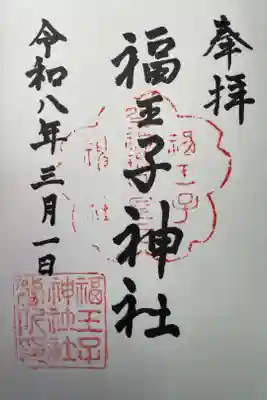 奉拝
福王子神社
令和八年三月一日
福王子
神社